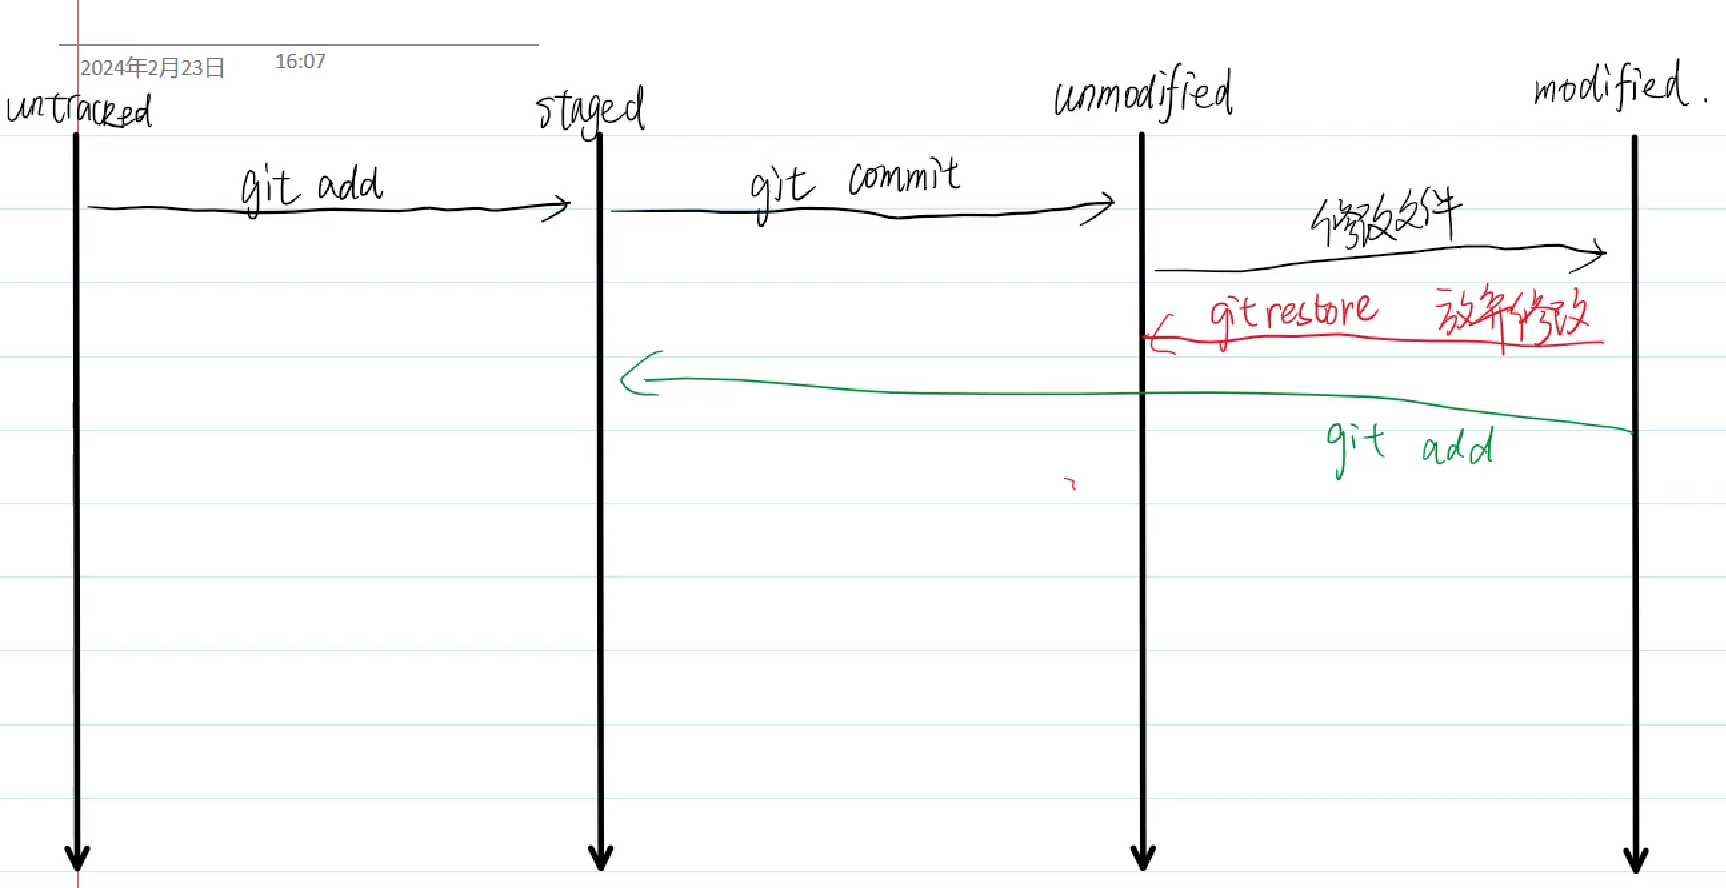 2024年2月23日 16:07
untracked staged unmodified modified.
git add git commit
修改文件
git restore 放弃修改
git add